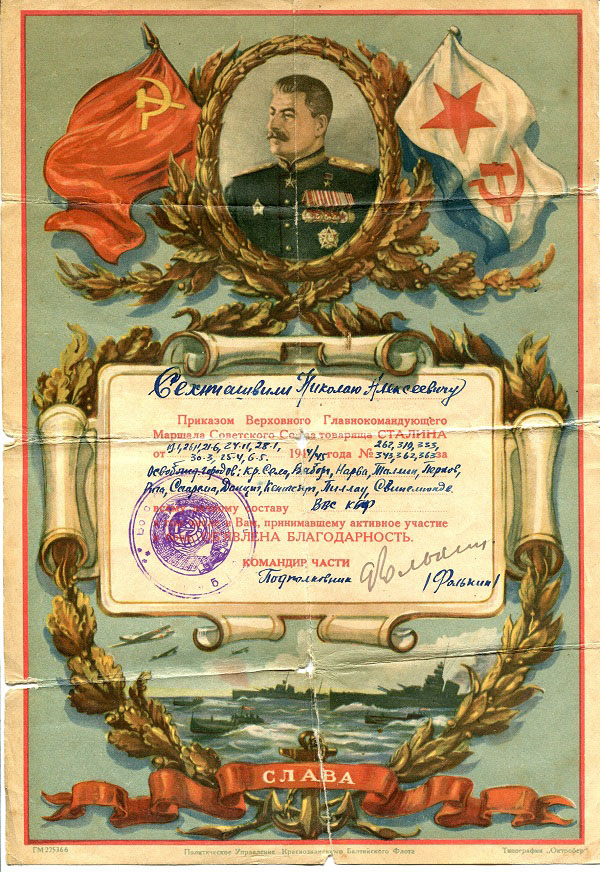 Сехниашвили Николаю Алексеевичу
Приказом Верховного Главнокомандующего
Маршала Советского Союза товарища СТАЛИНА
от 19.1, 26.1, 21.6, 24.11, 28.1, 30.3, 25.4, 6.5. 194 4/45 года № 262, 319, 333, 343, 362, 363 за
Освобожд. городов: Кр. Село, Выборг, Нарва, Таллин, Пярнов,
Рига, Сааремa, Данциг, Кенигсберг, Пиллау, Свинемюнде.
всему личному составу ВВС КБФ
и Вам, принимавшему активное участие
ОБ'ЯВЛЕНА БЛАГОДАРНОСТЬ.
КОМАНДИР ЧАСТИ
Подполковник /Фалькин/
СЛАВА
ГМ 225366 Политическое Управление Краснознаменного Балтийского Флота Типография